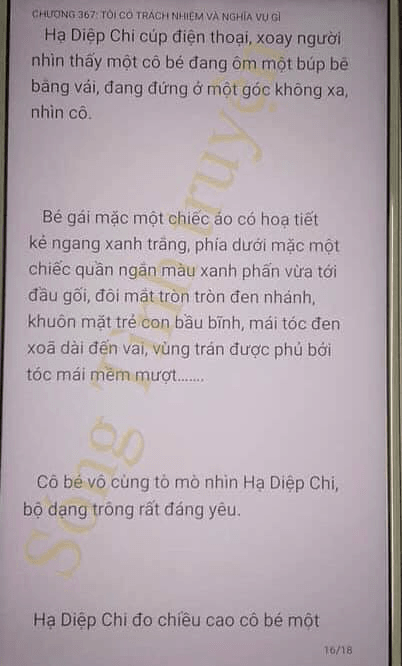 CHƯƠNG 367: TÔI CÓ TRÁCH NHIỆM VÀ NGHĨA VỤ GÌ
Hạ Diệp Chi cúp điện thoại, xoay người
nhìn thấy một cô bé đang ôm một búp bê
bằng vải, đang đứng ở một góc không xa,
nhìn cô.
Bé gái mặc một chiếc áo có hoạ tiết
kẻ ngang xanh trắng, phía dưới mặc một
chiếc quần ngắn màu xanh phấn vừa tới
đầu gối, đôi mắt tròn tròn đen nhánh,
khuôn mặt trẻ con bầu bĩnh, mái tóc đen
xoã dài đến vai, vùng trán được phủ bởi
tóc mái mềm mượt.......
Cô bé vô cùng tò mò nhìn Hạ Diệp Chi,
bộ dạng trông rất đáng yêu.
Hạ Diệp Chi đo chiều cao cô bé một
16/18
Sóng Tình truyện